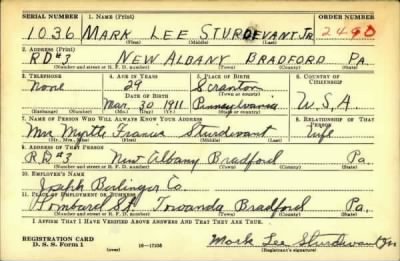 SERIAL NUMBER 1. NAME (Print) ORDER NUMBER
1036 MARK LEE STURDEVANT JR. 2490
(First) (Middle) (Last)
2. ADDRESS (Print)
RD#3 NEW ALBANY BRADFORD PA.
(Number and street or R. F. D. number) (Town) (County) (State)
3. TELEPHONE 4. AGE IN YEARS 5. PLACE OF BIRTH 6. COUNTRY OF CITIZENSHIP
None 29 Scranton
DATE OF BIRTH (Town or county)
Mar. 30 1911 Pennsylvania U.S.A.
(Exchange) (Number) (Mo.) (Day) (Yr.) (State or country)
7. NAME OF PERSON WHO WILL ALWAYS KNOW YOUR ADDRESS 8. RELATIONSHIP OF THAT PERSON
Mrs Myrtle Francis Sturdevant Wife
(Mr., Mrs., Miss) (First) (Middle) (Last)
9. ADDRESS OF THAT PERSON
R.D.#3 New Albany Bradford Pa.
(Number and street or R. F. D. number) (Town) (County) (State)
10. EMPLOYER'S NAME
Joseph Berlinger Co.
11. PLACE OF EMPLOYMENT OR BUSINESS
Lombard St. Towanda Bradford Pa.
(Number and street or R. F. D. number) (Town) (County) (State)
I AFFIRM THAT I HAVE VERIFIED ABOVE ANSWERS AND THAT THEY ARE TRUE.
REGISTRATION CARD
D. S. S. Form 1 (over) 16-17105 Mark Lee Sturdevant Jr.
(Registrant's signature)